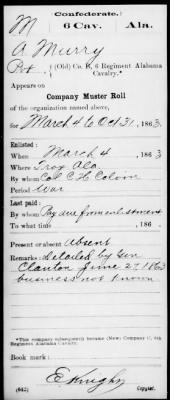 Confederate.
M 6 Cav. Ala.
A Murry
Pvt., (Old) Co. B, 6 Regiment Alabama
Cavalry.*
Appears on
Company Muster Roll
of the organization named above,
for March 4 to Oct 31, 1863
Enlisted:
When March 4, 1863
Where Troy Ala
By whom Col C H Colvin
Period War
Last paid:
By whom Pay due from enlistment
To what time , 186 .
Present or absent Absent
Remarks: Detailed by Gen
Clanton June 27 1863
business not known
*This company subsequently became (New) Company C, 6th
Regiment Alabama Cavalry.
Book mark:
E Knight
(642) Copyist.